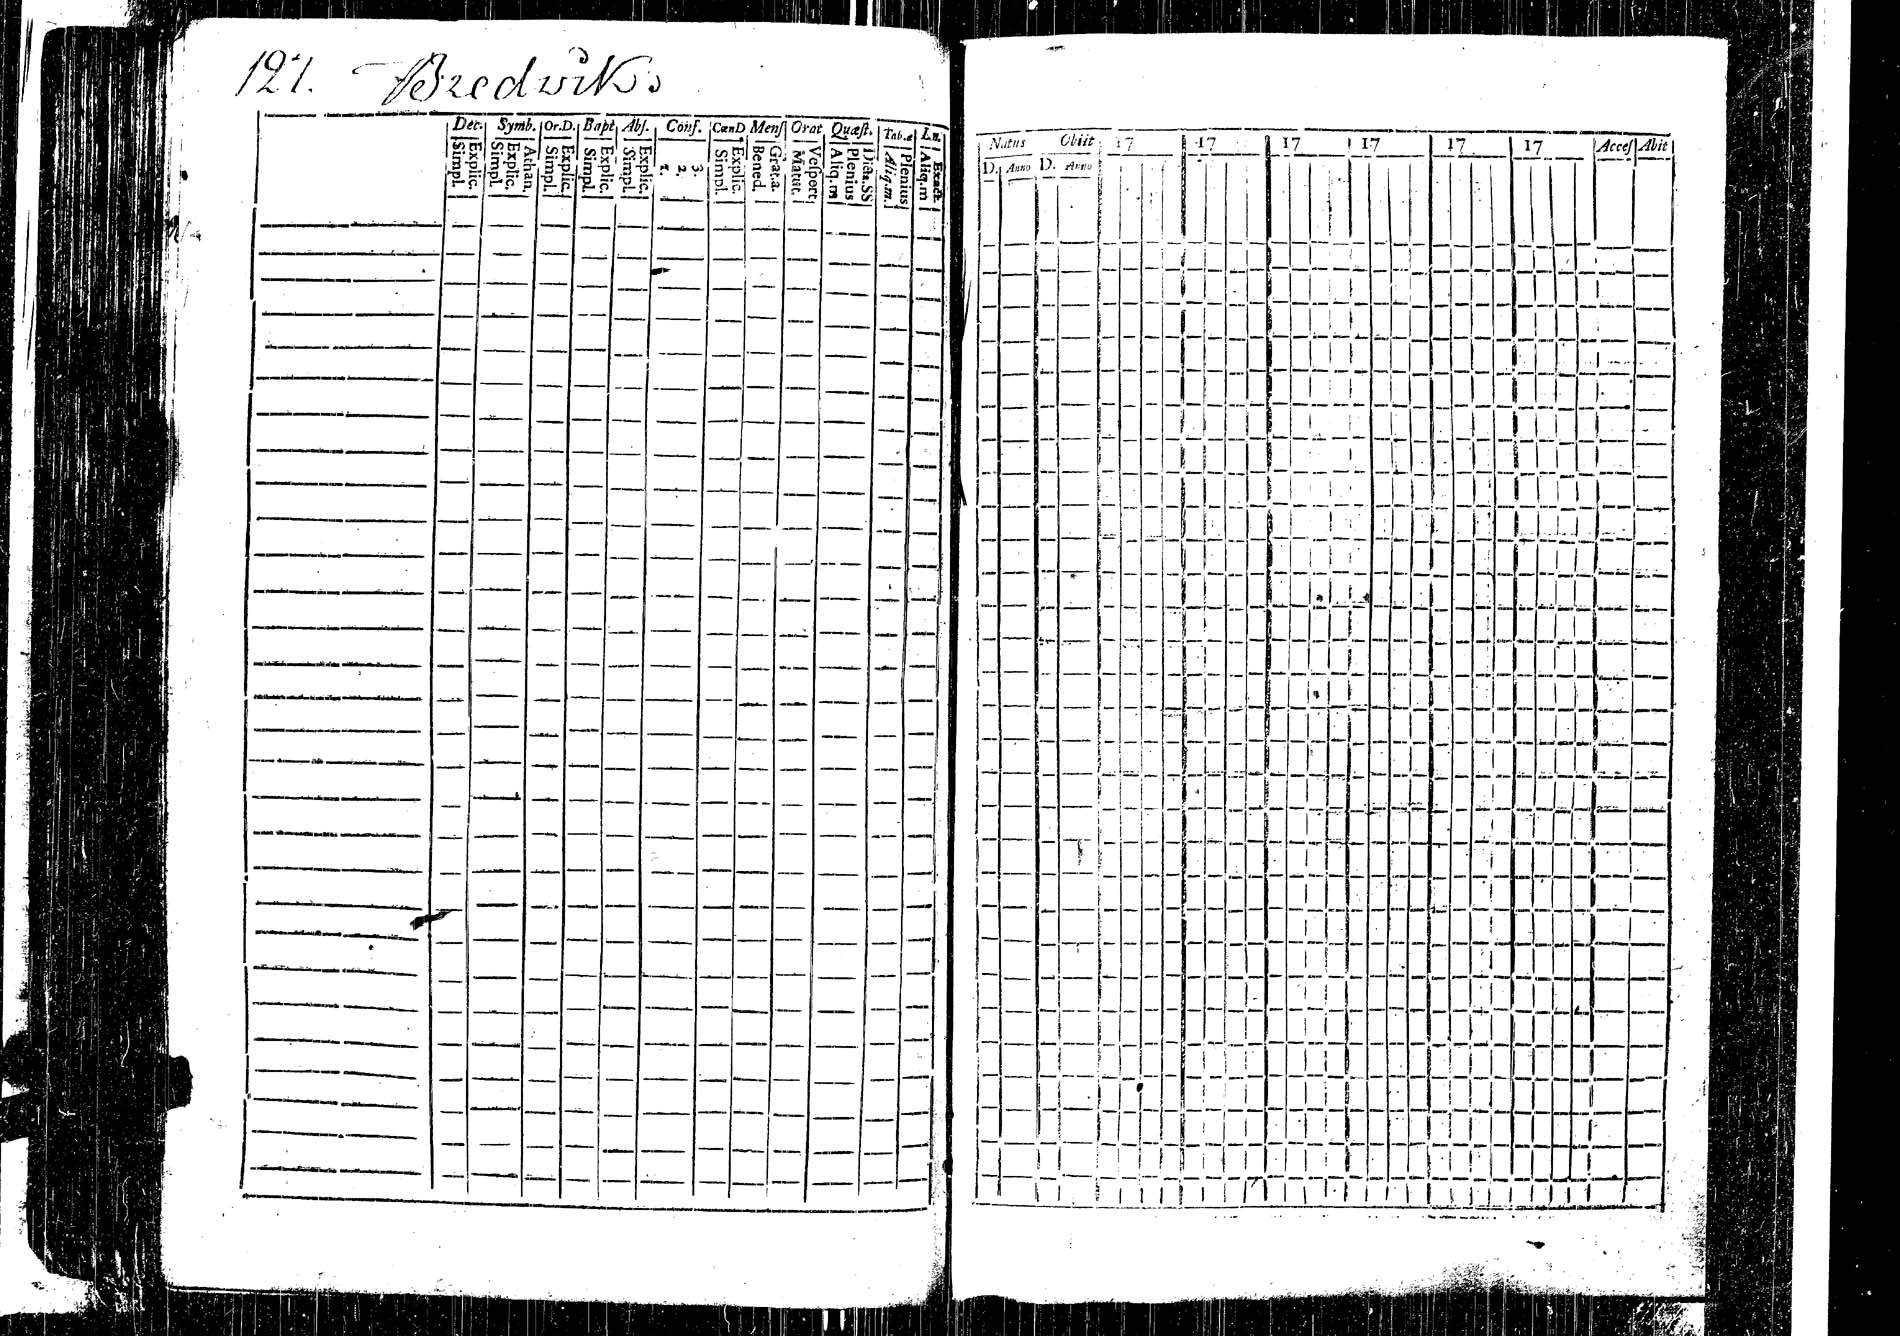 127. Bredwik
Dec. Symb. Or.D. Bapt Abſ. Conf. CœnD Menſ Orat Quæſt. Tab.æ L.n.
Explic. Simpl. Athan. Explic. Simpl. Explic. Simpl. Explic. Simpl. Explic. Simpl. 3. 2. 1. Explic. Simpl. Grat.a. Bened. Veſpert Matut. Dict.SS Plenius Aliq.m Plenius Aliq.m. Exacte Aliq.m
Natus Obiit 17 17 17 17 17 17 Acceſ Abit
D. Anno D. Anno